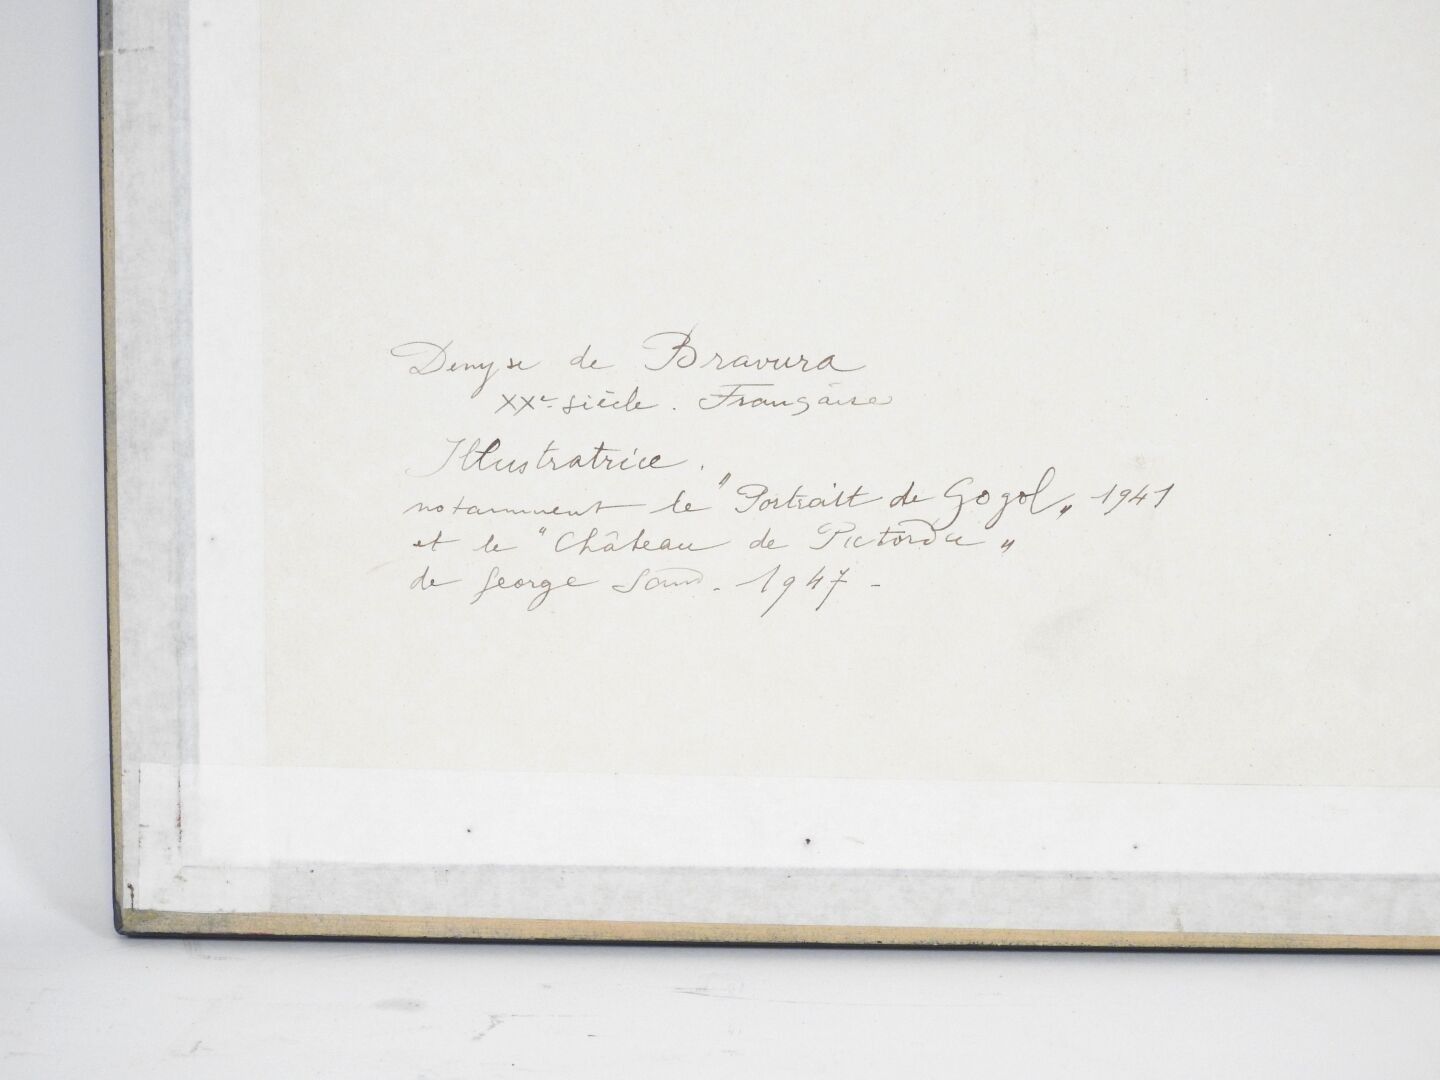 Denyse de Bravura
XXe siècle. Française
Illustratrice.
notamment le "Portrait de Gogol" 1941
et le "Château de Pictordu"
de George Sand. 1947 -